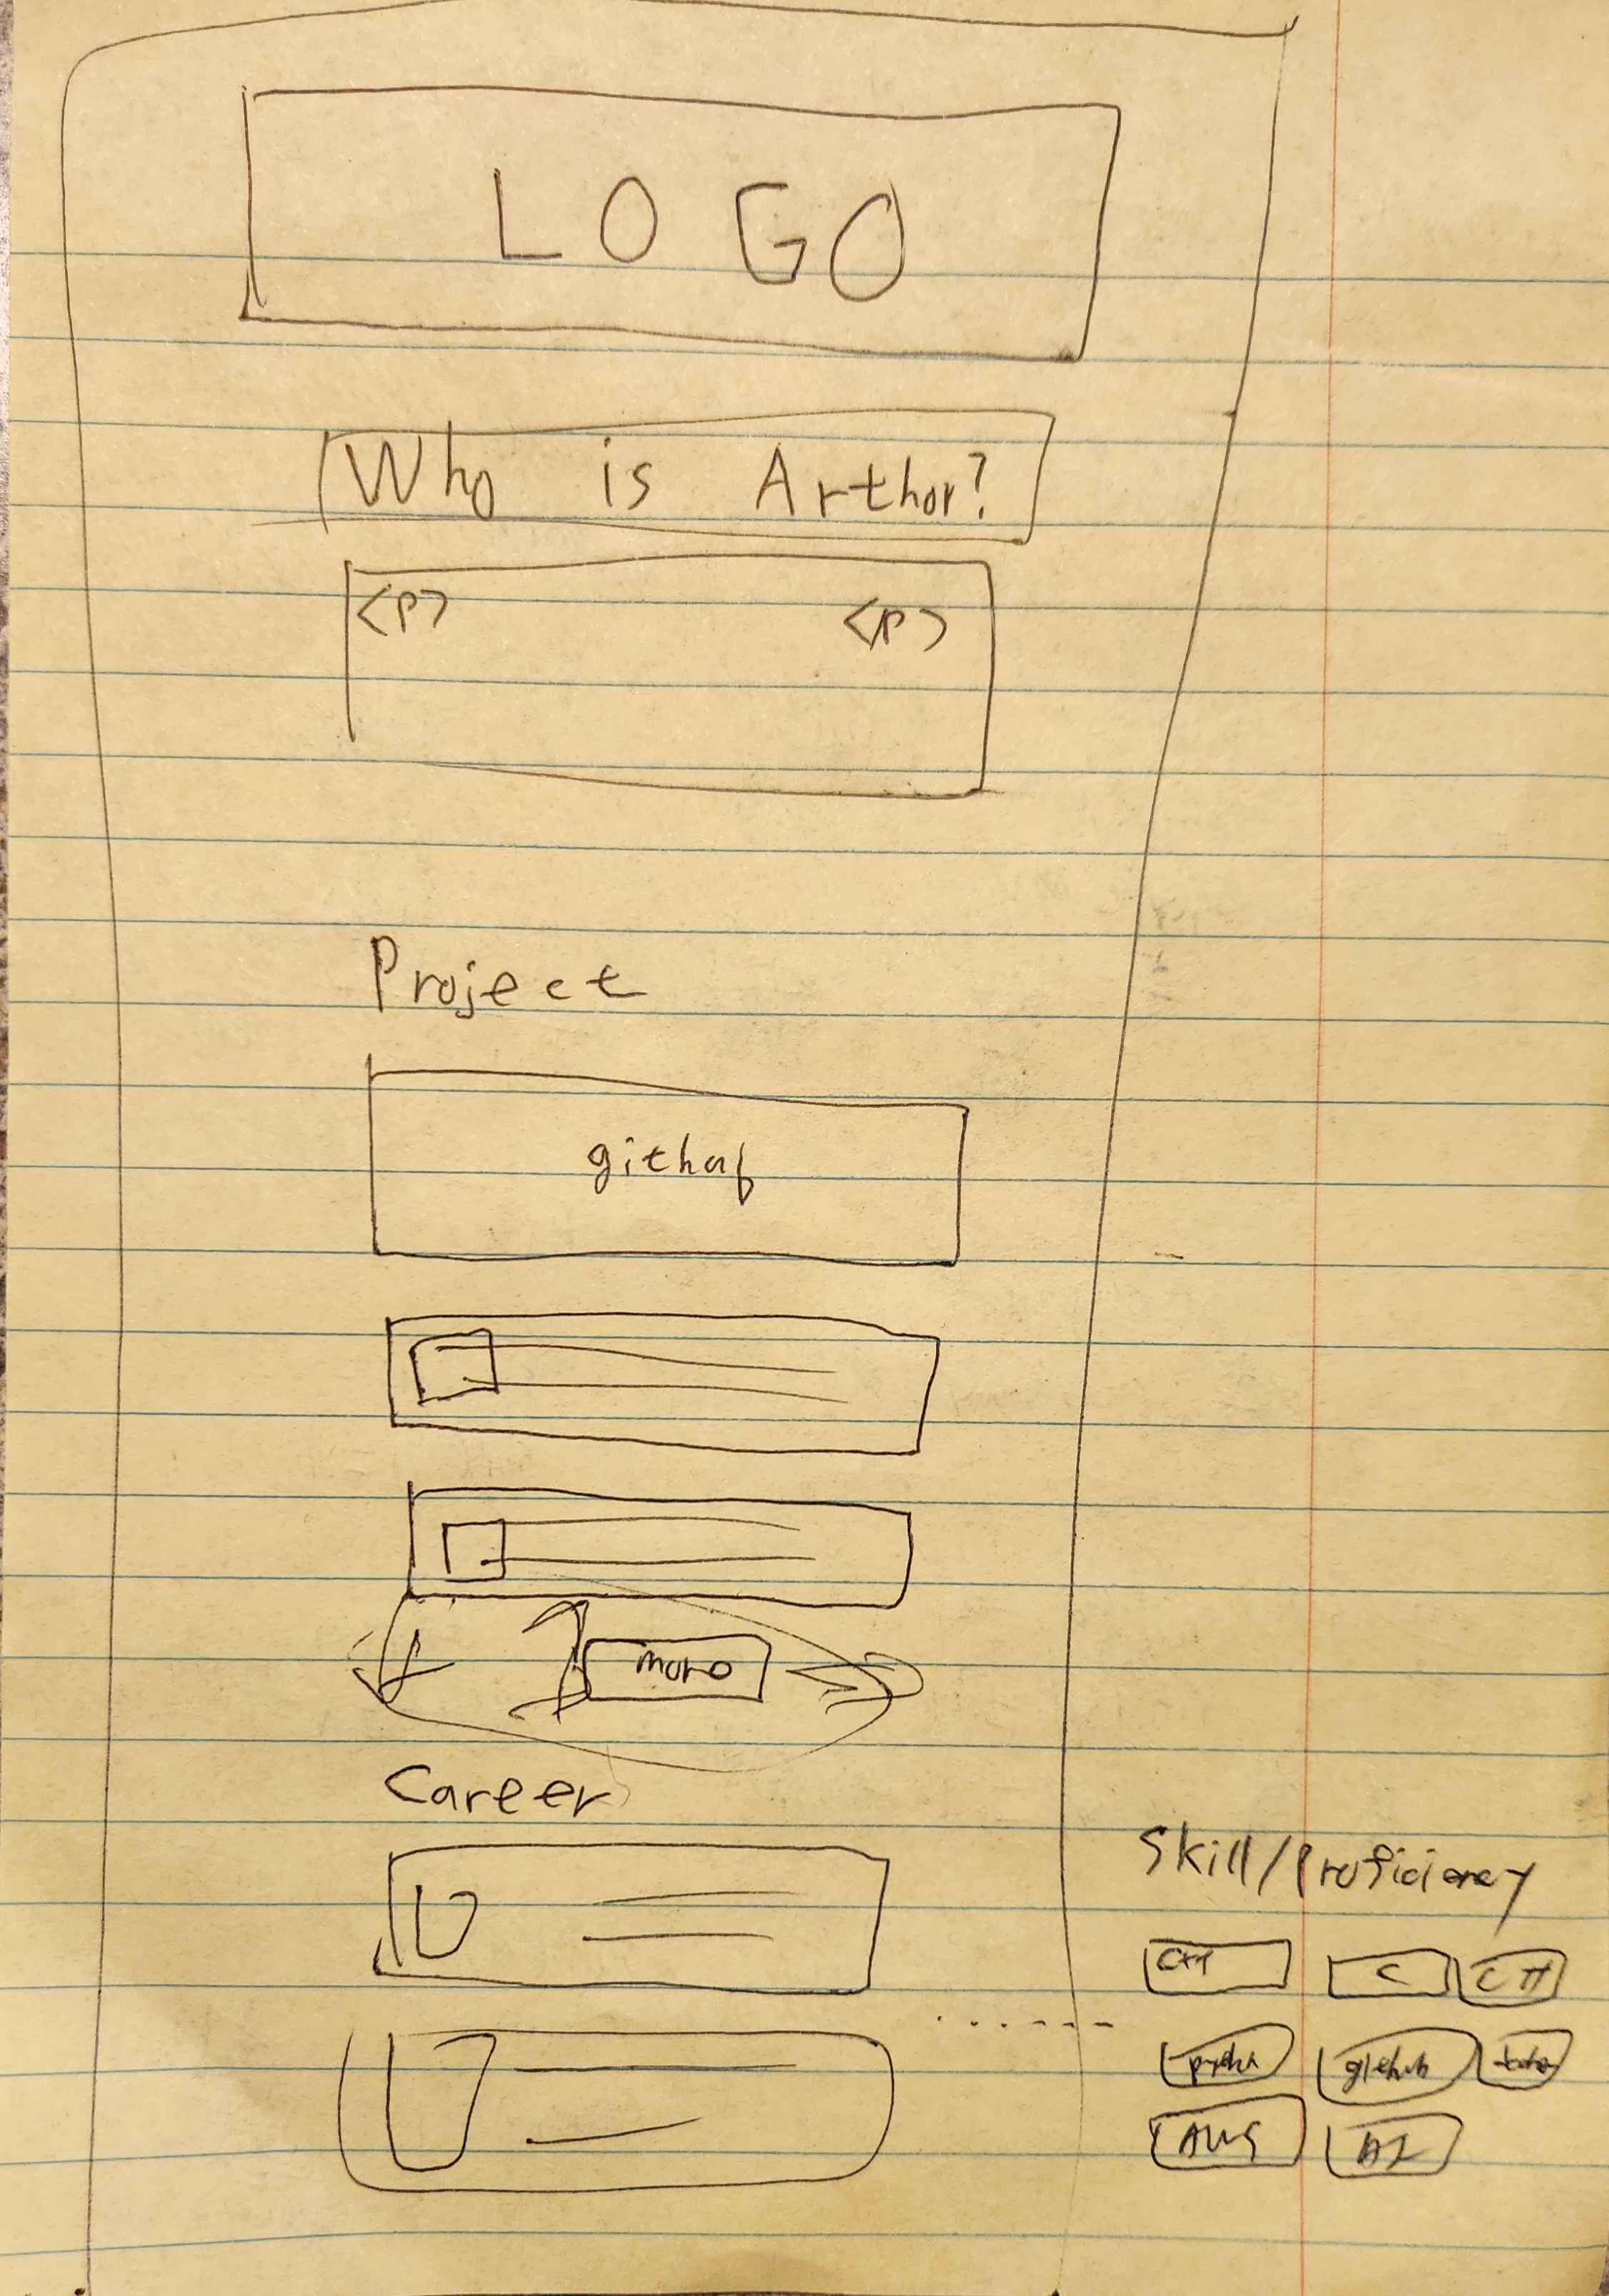 LOGO
Who is Arthor?
<p> <p>
Project
github
more
Career
Skill/Proficiency
C++ C C#
github
AWS AI